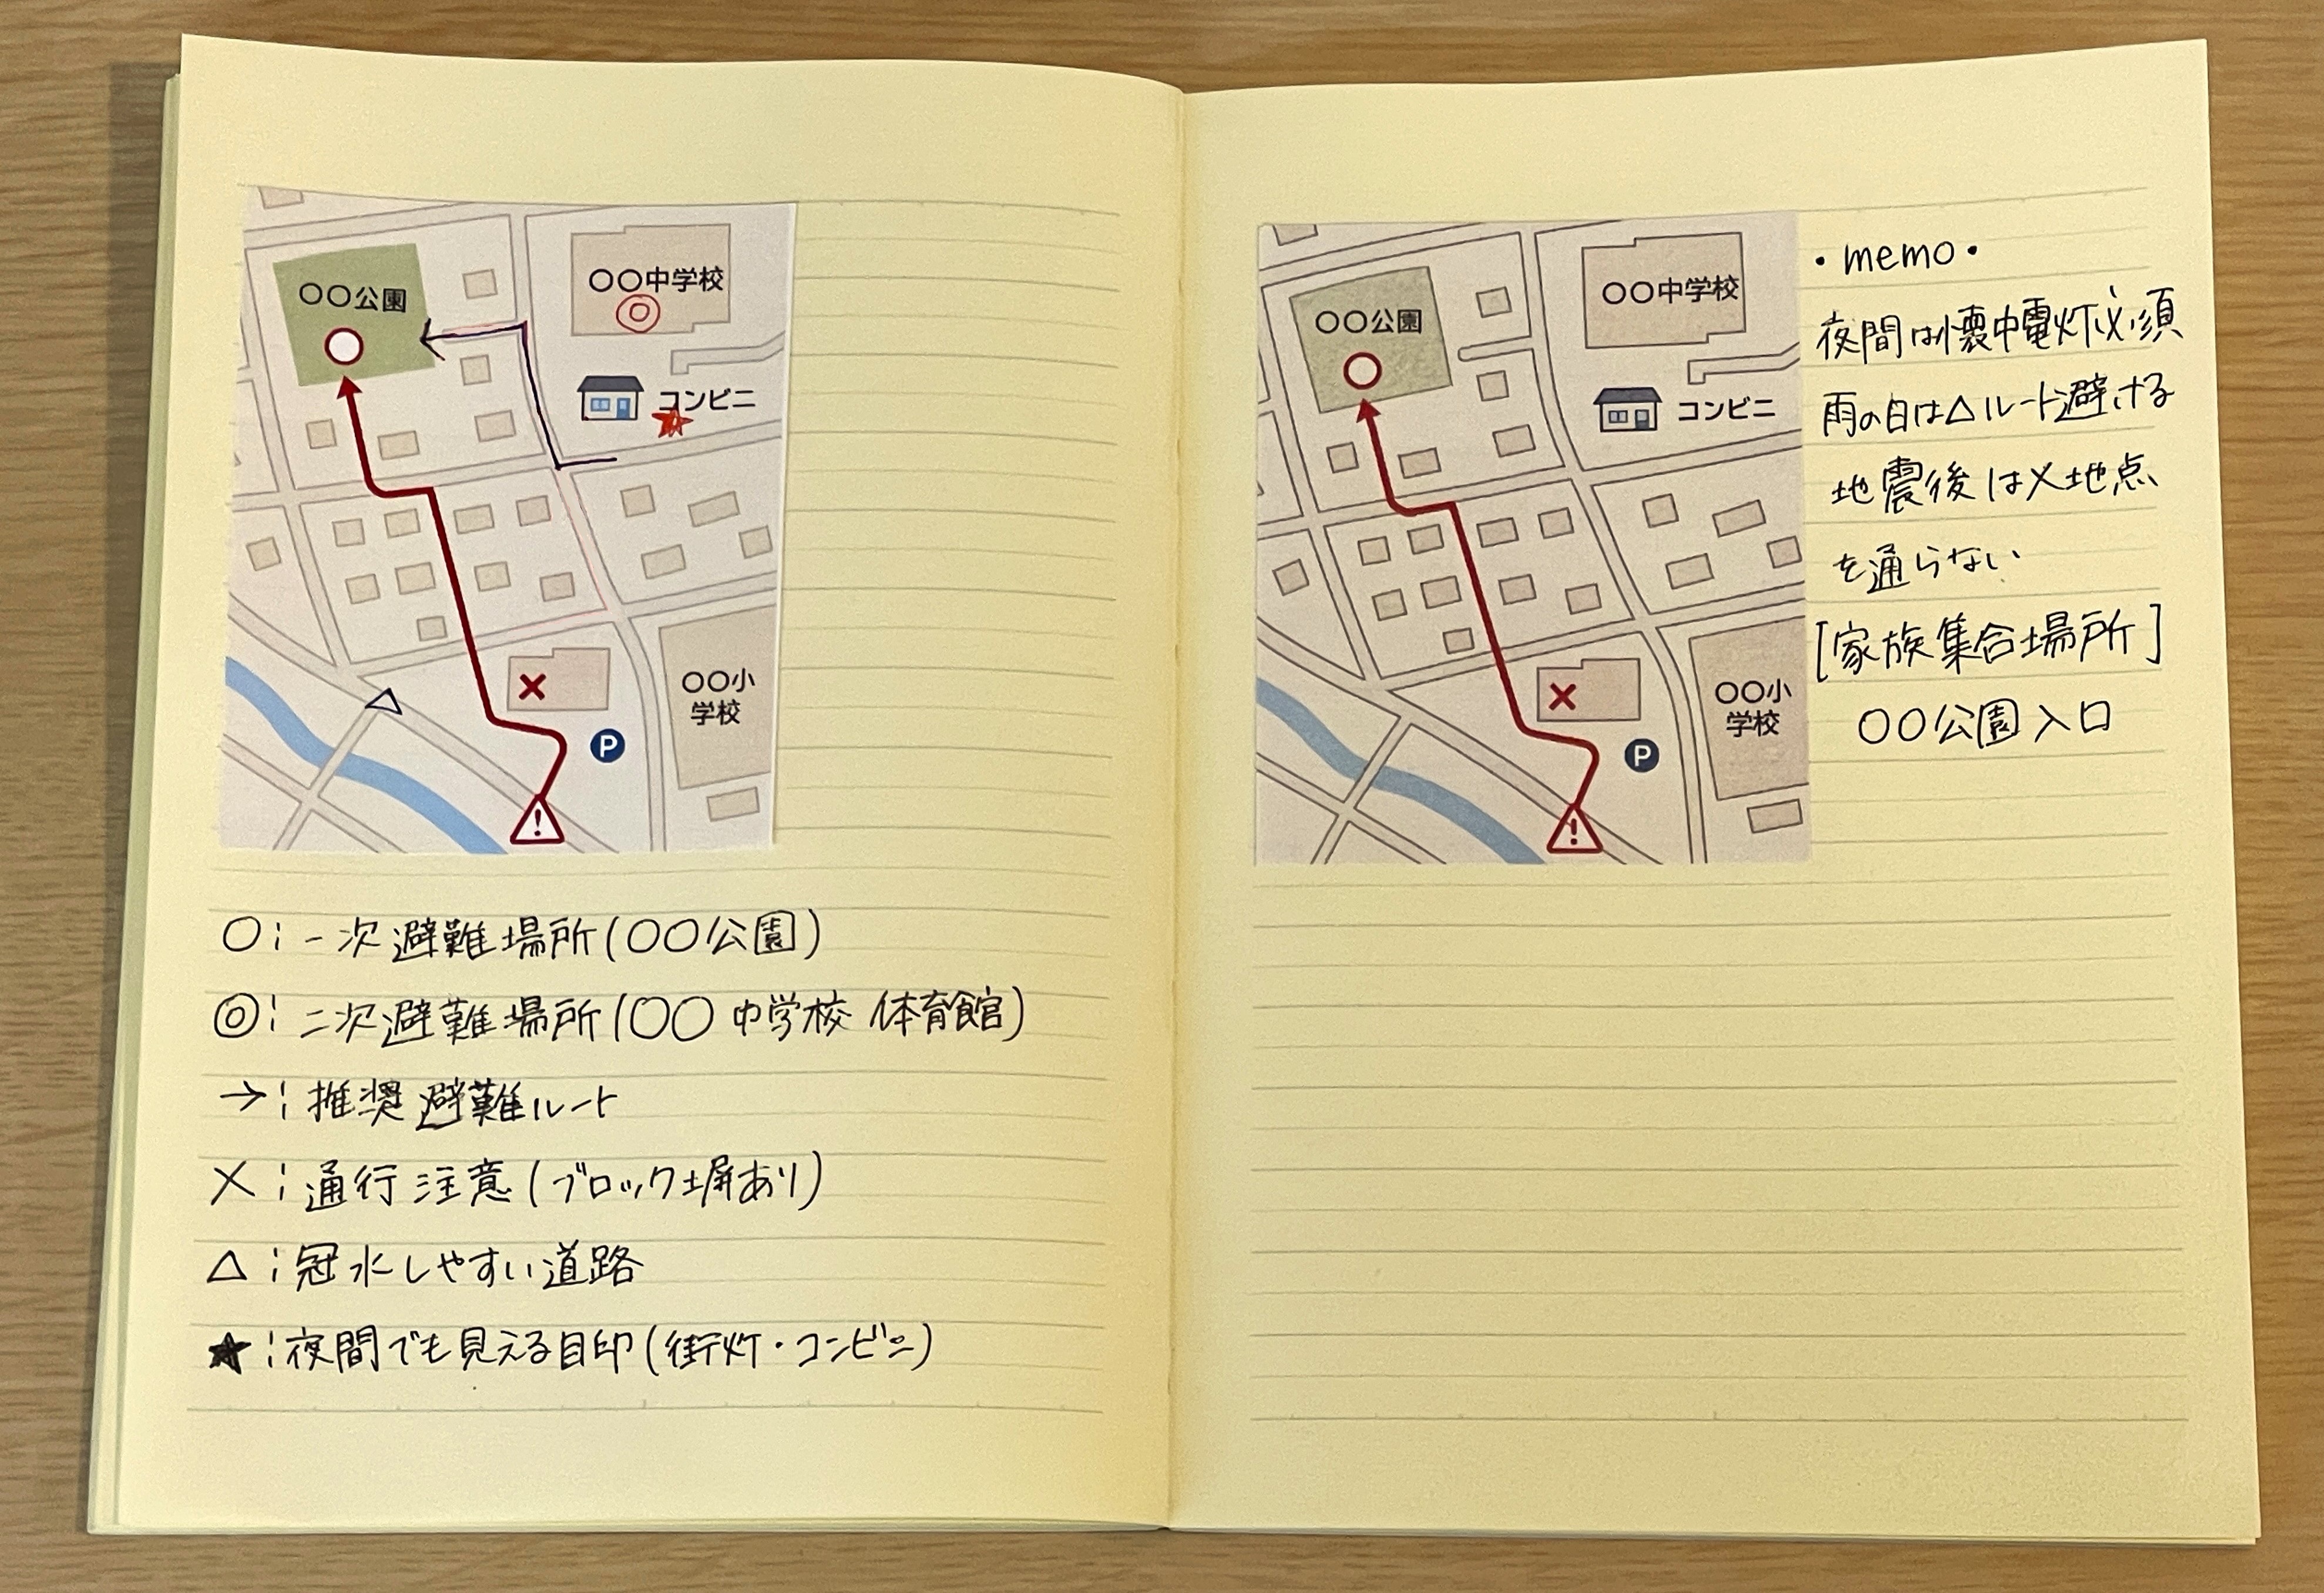 〇〇公園
〇〇中学校
◎
コンビニ
★
×
△
〇〇小
学校
P
!
○:一次避難場所(〇〇公園)
◎:二次避難場所(〇〇中学校 体育館)
→:推奨避難ルート
×:通行注意(ブロック塀あり)
△:冠水しやすい道路
★:夜間でも見える目印(街灯・コンビニ)
〇〇公園
〇〇中学校
コンビニ
×
〇〇小
学校
P
!
・memo・
夜間は懐中電灯必須
雨の日は△ルート避ける
地震後は×地点
を通らない
[家族集合場所]
〇〇公園入口